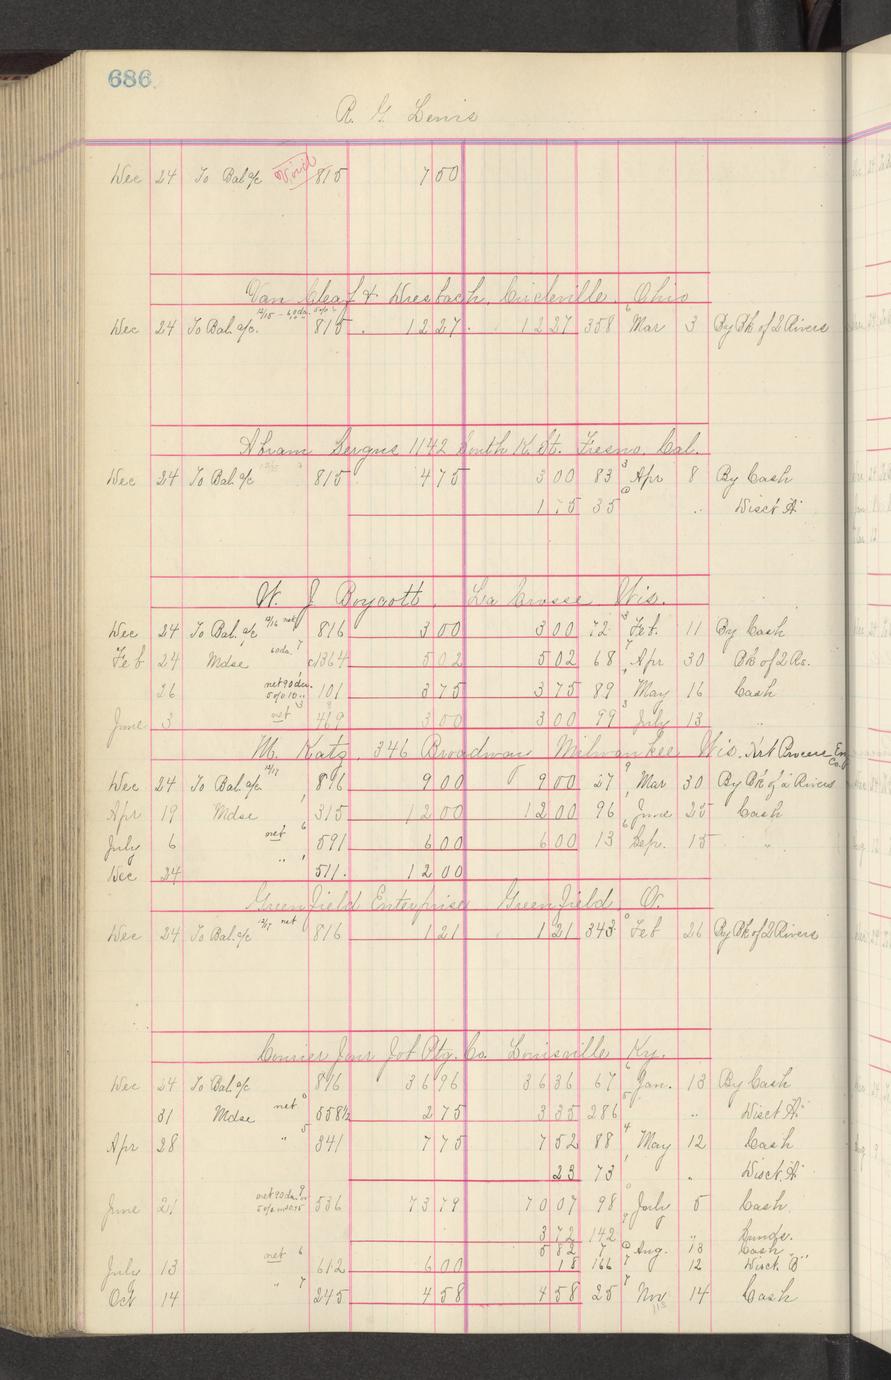 686
R. G. Lewis
Dec 24 To Bal. a/c Void 815 7 50
Van Cleaf & Dresbach, Circleville, Ohio
Dec 24 To Bal. a/c. 815 12 27 12 27 358 Mar 3 By Bk of 2 Rivers
1142 South K. St. Fresno, Cal.
Dec 24 To Bal a/c 815 4 75 3 00 83 Apr 8 By Cash
1 75 35 " Disct A
W. J. Boycott, La Crosse, Wis.
Dec 24 To Bal. a/c net 816 3 00 3 00 72 Feb. 11 By Cash
Feb 24 Mdse 60 da. 1364 5 02 5 02 68 Apr 30 Bk of 2 Rs.
26 net 90 da. 101 3 75 3 75 89 May 16 Cash
June 3 net 469 3 00 3 00 99 July 13 "
M. Katz, 346 Broadway Milwaukee Wis. Art Process Eng Co.
Dec 24 To Bal. a/c 816 9 00 9 00 27 Mar 30 By Bk of 2 Rivers
Apr 19 Mdse 315 12 00 12 00 96 June 25 Cash
July 6 net 591 6 00 6 00 13 Sep. 15 "
Dec 24 " 511. 12 00
Greenfield Enterprise Greenfield, O.
Dec 24 To Bal. a/c net 816 1 21 1 21 343 Feb 26 By Bk of 2 Rivers
Courier Jour Job Ptg. Co. Louisville Ky.
Dec 24 To Bal a/c 816 36 96 36 36 67 Jan. 13 By Cash
31 Mdse net 558½ 2 75 3 35 286 " Disct A
Apr 28 " 341 7 75 7 52 88 May 12 Cash
23 73 " Disct. A
June 21 net 90 da. 536 73 79 70 07 98 July 5 Cash.
3 72 142 " Sundr.
5 82 7 Aug. 13 Cash
July 13 net 612 6 00 18 166 12 Disct. B
Oct 14 " 245 4 58 4 58 25 Nov 14 Cash